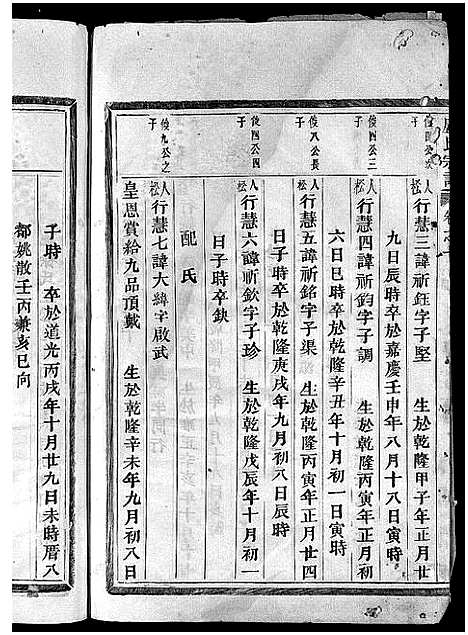 俊四公次子
松人行慧三諱祈鈺字子堅　生於乾隆甲子年正月廿
九日辰時卒於嘉慶壬申年八月十八日寅時
俊四公三子
松人行慧四諱祈鈞字子調　生於乾隆丙寅年正月初
六日巳時卒於乾隆辛丑年十月初一日寅時
俊八公長子
松人行慧五諱祈銘字子渠　生於乾隆丙寅年正月廿四
日子時卒於乾隆庚戌年九月初八日辰時
俊四公四子
松人行慧六諱祈欽字子珍　生於乾隆戊辰年十月初一
日子時卒缺
配氏
俊九公之子
松人行慧七諱大緯字啟武
皇恩賞給九品頂戴　生於乾隆辛未年九月初八日
子時　卒於道光丙戌年十月廿九日未時厝八
都姚散壬丙兼亥巳向